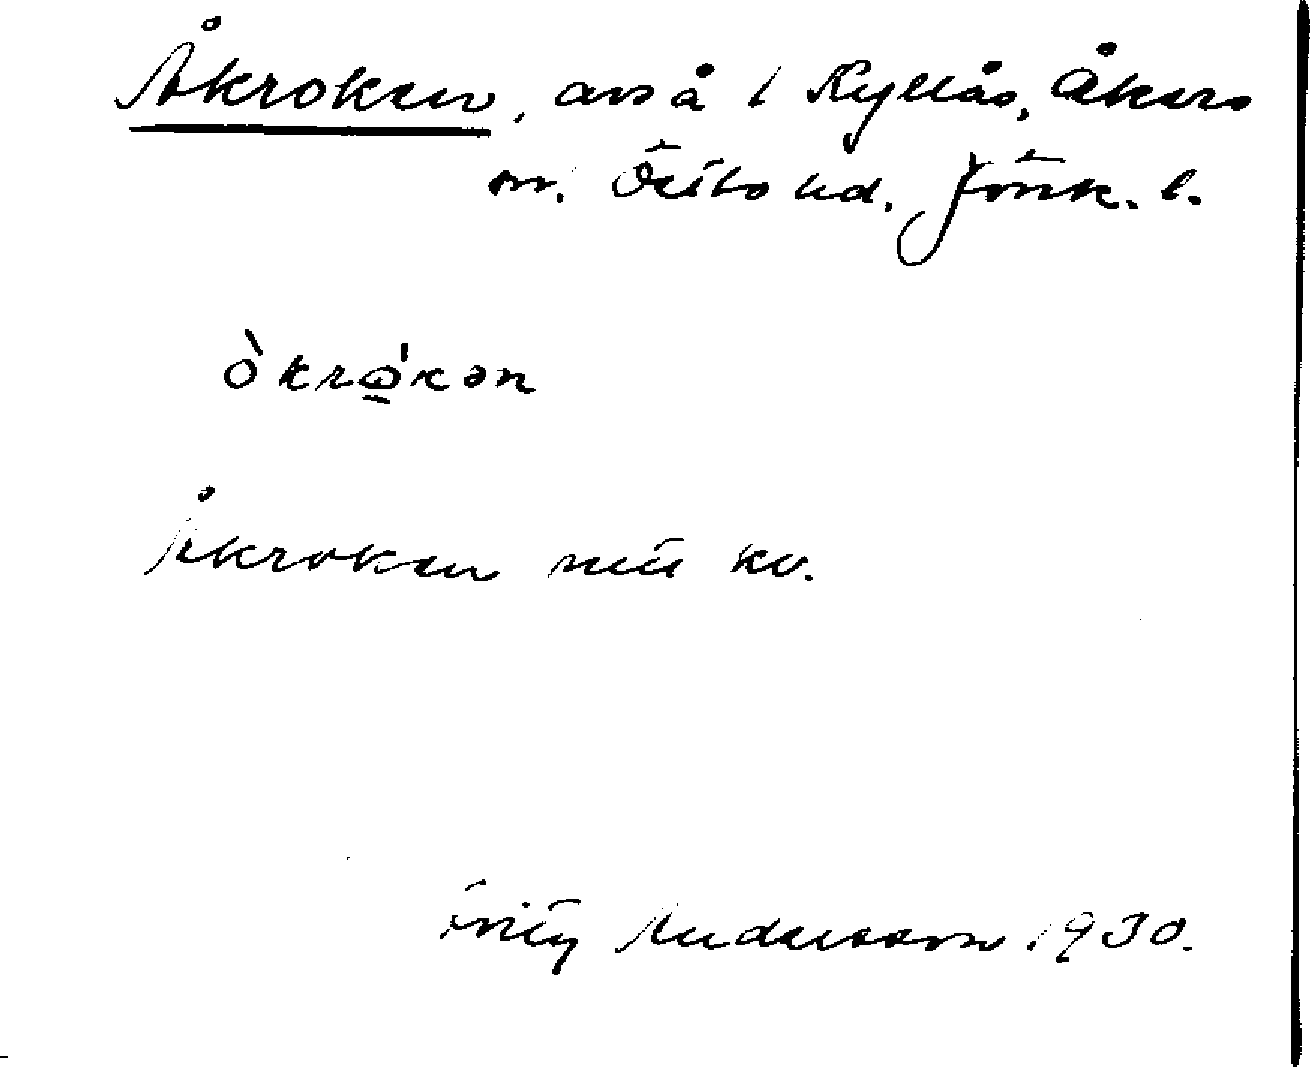 Åkroken, avs å t Kyllås, Åkers
sn. Östbo hd. Jönk. l.
òkrω̱'kən
Åkroken mitt kv.
Frity Andersson 1930.